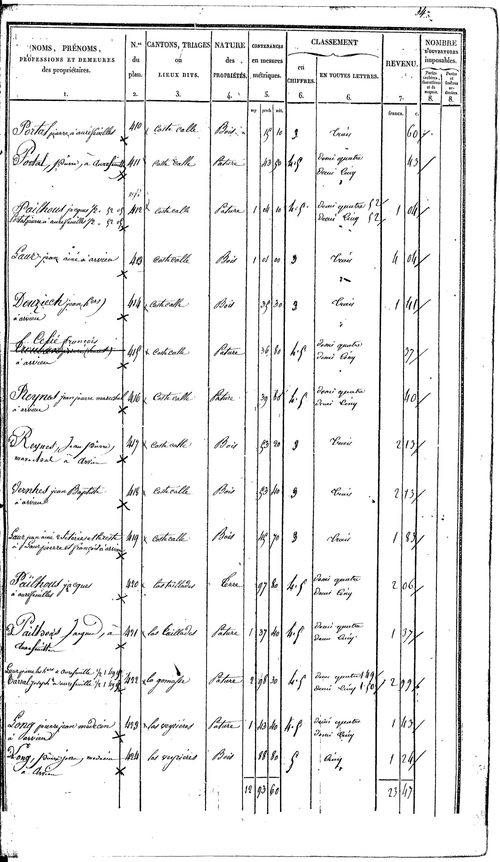 34.
NOMS, PRÉNOMS, PROFESSIONS ET DEMEURES des propriétaires. N.os du plan. CANTONS, TRIAGES ou LIEUX DITS. NATURE des PROPRIÉTÉS. CONTENANCES en mesures métriques. CLASSEMENT en CHIFFRES. EN TOUTES LETTRES. REVENU. NOMBRE d'OUVERTURES imposables.
1. 2. 3. 4. 5. 6. 6. 7. 8. 8.
francs. c.
Portal pierre à aurefeuilles 410 Coste calle Bois 15 10 3 Trois 60
Portal, Pierre, à aurefeuille 411 Coste calle Pature 43 50 4-5 Demi quatre Demi Cinq 43
Pailhous jacques 1/2. 52 05
Portal pierre à aurefeuilles 1/2. 52 05 412 Coste calle Pature 1 04 10 4-5. Demi quatre 52 Demi Cinq 52 1 04
Laur jean ainé à arvieu 413 Coste calle Bois 1 01 00 3 Trois 4 04
Douziech jean
à arvieu 414 Coste calle Bois 35 30 3 Trois 1 41
françois
à arvieu 415 Coste calle Pature 36 80 4-5 Demi quatre Demi Cinq 37
Reynes jean pierre marechal
à arvieu 416 Coste calle Pature 39 80 4-5 Demi quatre Demi Cinq 40
Reynes, Jean Pierre,
marechal à Arvieu 417 Coste calle Bois 53 20 3 Trois 2 13
Vernhes jean Baptiste
à arvieu 418 Coste calle Bois 53 40 3 Trois 2 13
Laur jean ainé
à arvieu 419 Coste calle Bois 45 70 3 Trois 1 83
Pailhous jacques
à aurefeuilles 420 las taillades Terre 97 80 4-5 Demi quatre Demi Cinq 2 06
Pailhous Jacques, à
aurefeuille 421 las Taillades Pature 1 37 40 4-5 Demi quatre Demi Cinq 1 37
à aurefeuille 1/2 1 49
joseph à aurefeuille 1/2 1 49 422 Pature 2 98 30 4-5 Demi quatre 149 Demi Cinq 150 2 99
Long pierre jean medecin
à arvieu 423 las veyrieres Pature 1 43 40 4-5 Demi quatre Demi Cinq 1 43
Long, Pierre jean, medecin
à Arvieu 424 las veyrieres Bois 88 80 5 Cinq 1 24
12 93 60 23 47